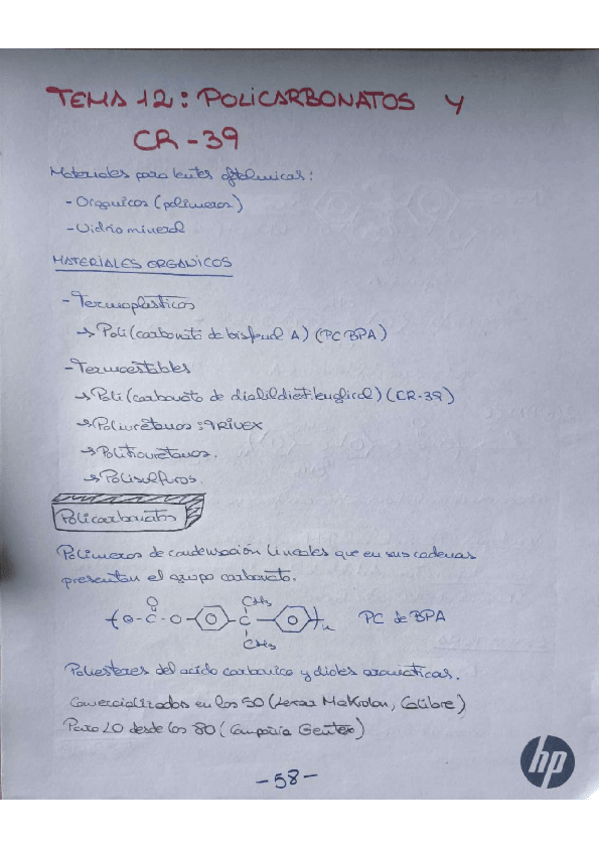 TEMA 12: POLICARBONATOS Y
CR-39
Materiales para lentes oftálmicas:
- Orgánicos (polímeros)
- Vidrio mineral
MATERIALES ORGANICOS
- Termoplásticos
→ Poli(carbonato de bisfenol A) (PC BPA)
- Termoestables
→ Poli(carbonato de dialildietilenglicol) (CR-39)
→ Poliuretanos: TRIVEX
→ Politiouretanos.
→ Polisulfuros.
Policarbonatos
Polímeros de condensación lineales que en sus cadenas
presentan el grupo carbonato.
O CH3
O-C-O C n PC de BPA
CH3
Poliésteres del ácido carbónico y dioles aromáticas.
Comercializados en los 50 (Lexan Makrolon, Calibre)
Para LO desde los 80 (Compañía Gentex)
-58-
hp